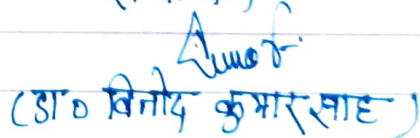 (डा० विनोद कुमार साह)